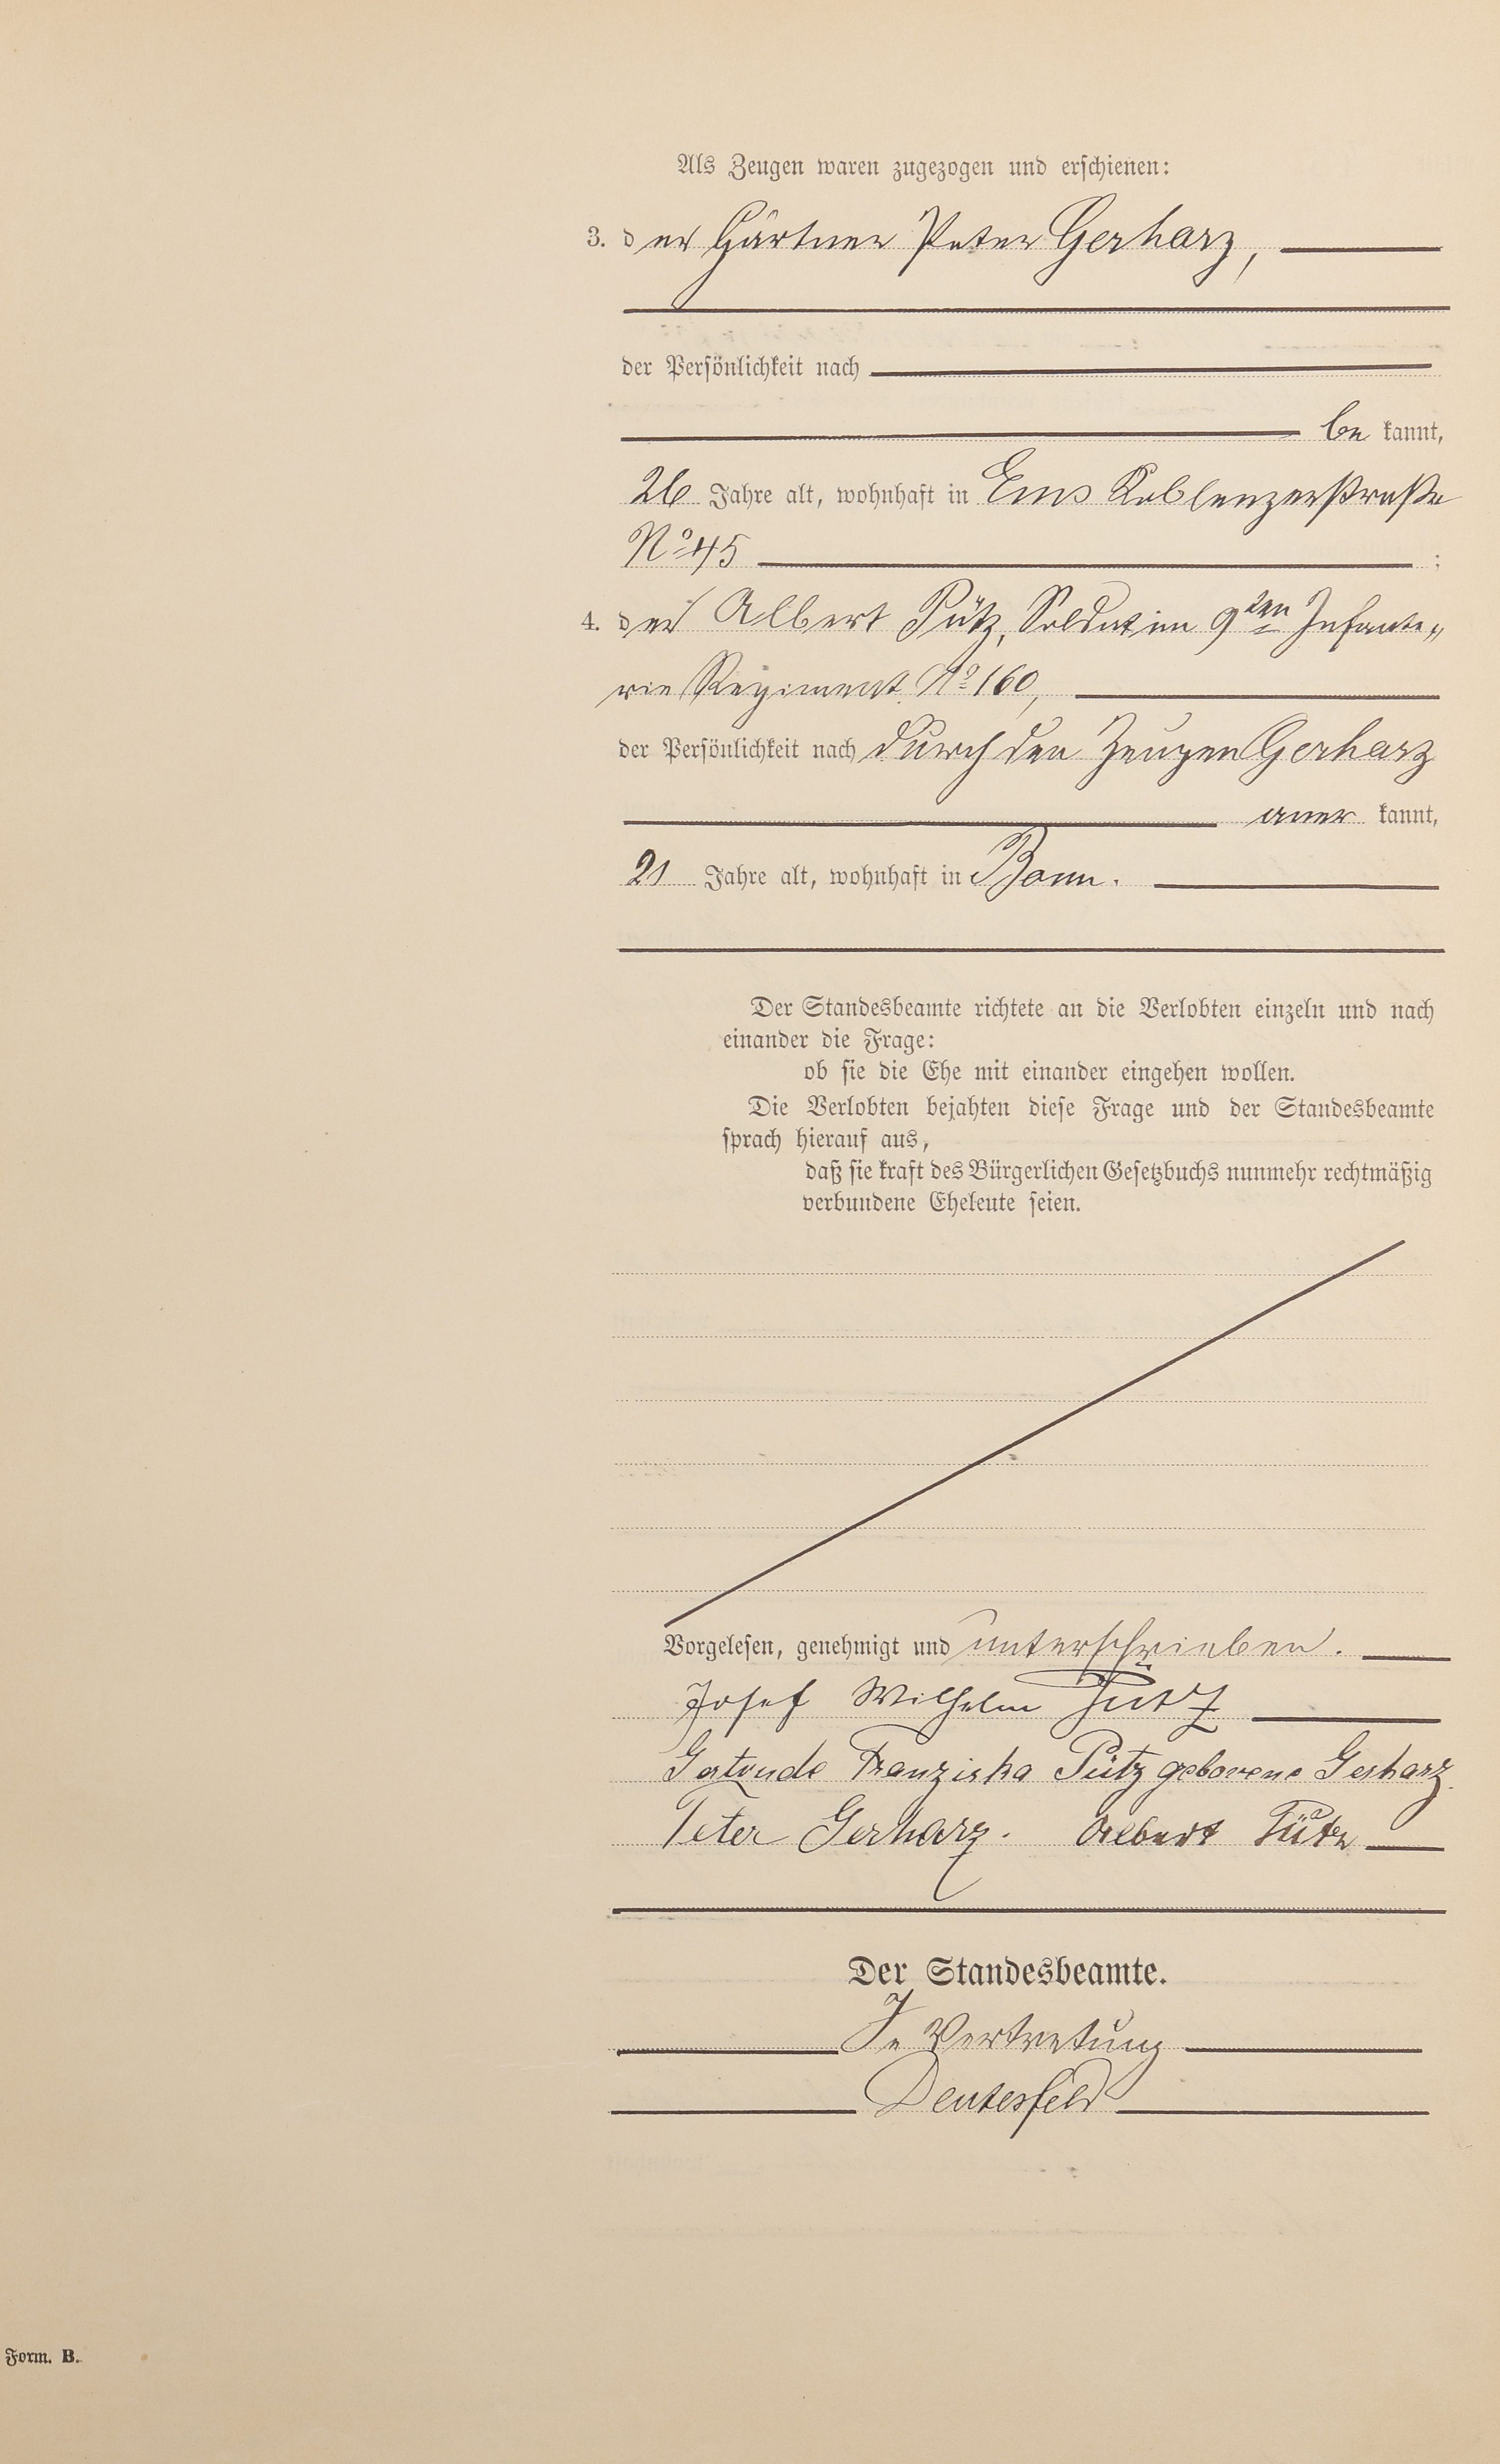 Als Zeugen waren zugezogen und erschienen:
3. der Gärtner Peter Gerharz,
der Persönlichkeit nach
bekannt,
26 Jahre alt, wohnhaft in Ems Koblenzerstraße
No 45 ;
4. der Albert Pütz, Soldat im 9ten Infante„
rie Regiment No 160,
der Persönlichkeit nach durch den Zeugen Gerharz
anerkannt,
21 Jahre alt, wohnhaft in Bonn.
Der Standesbeamte richtete an die Verlobten einzeln und nach
einander die Frage:
ob sie die Ehe mit einander eingehen wollen.
Die Verlobten bejahten diese Frage und der Standesbeamte
sprach hierauf aus,
daß sie kraft des Bürgerlichen Gesetzbuchs nunmehr rechtmäßig
verbundene Eheleute seien.
Vorgelesen, genehmigt und unterschrieben.
Josef Wilhelm Pütz
Gertrude Franziska Pütz geborene Gerharz.
Peter Gerharz. Albert Pütz
Der Standesbeamte.
In Vertretung
Deutesfeld
Form. B.